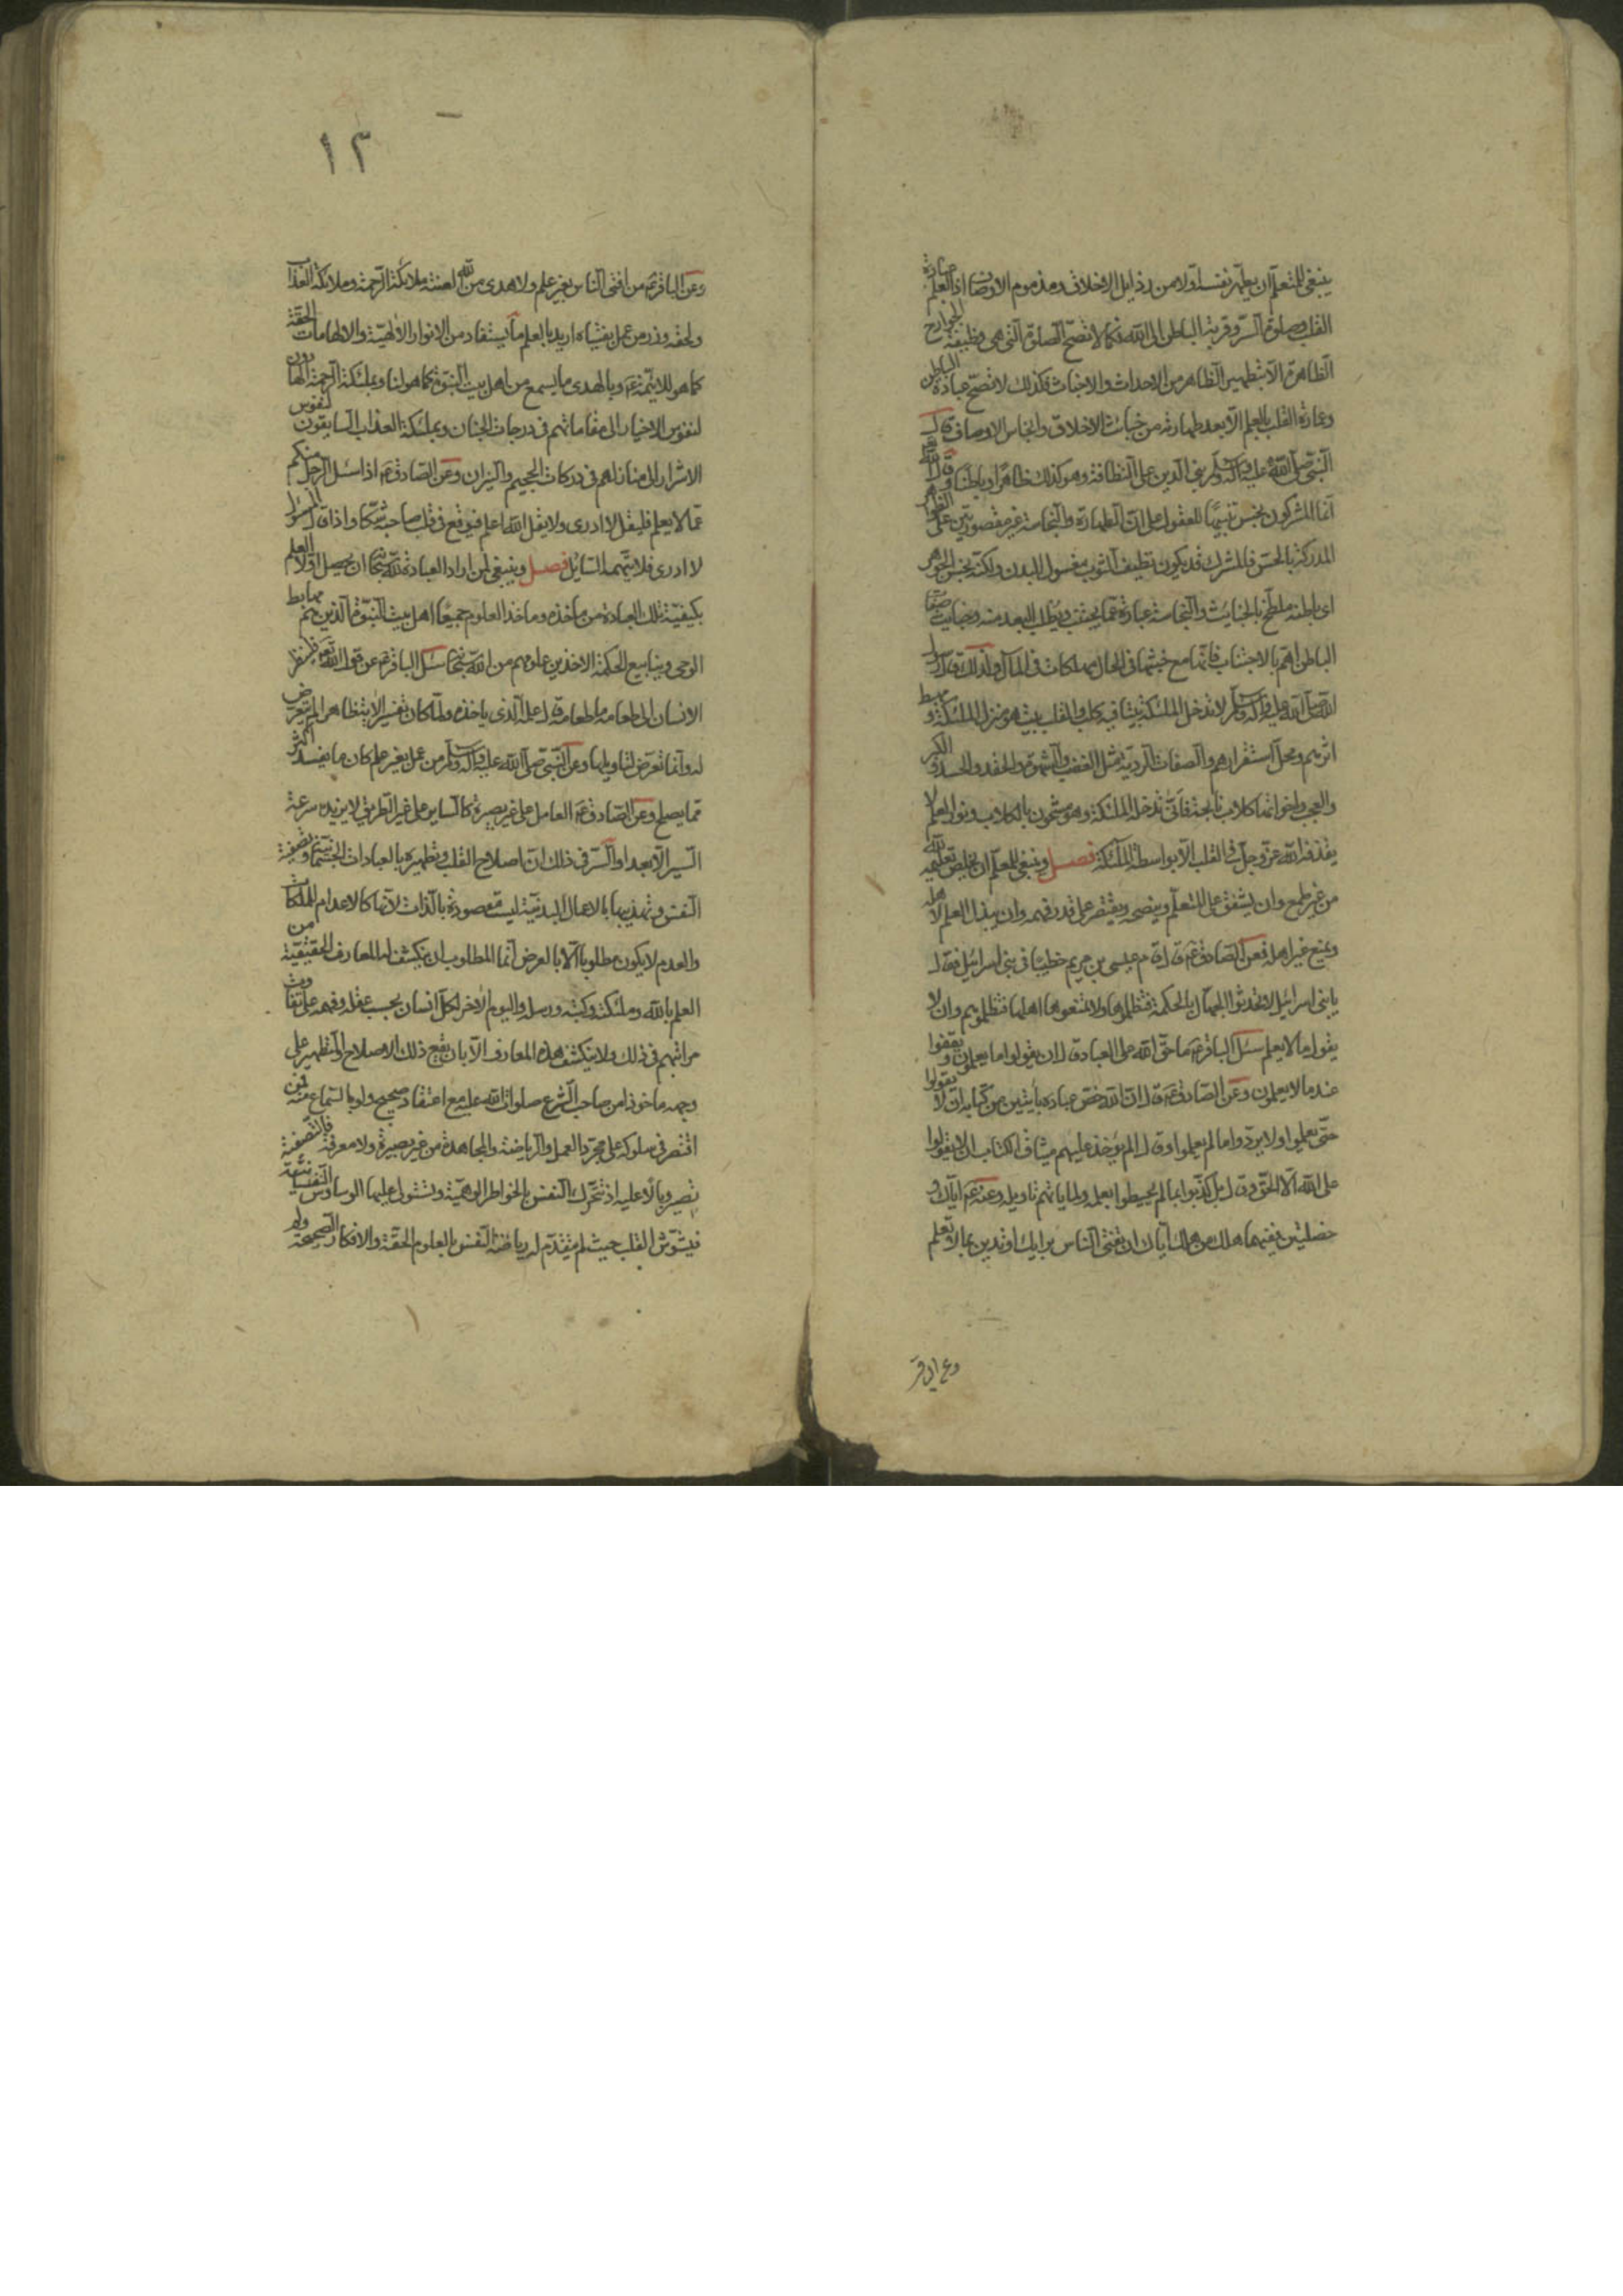 ينبغي للمتعلم ان يطهر نفسه اولا من رذايل الاخلاق ومذموم الاوصاف اذ العلم عبادة
القلب وصلوة السر وقربة الباطن الى الله فكما لا تصح الصلوة التي هي وظيفة الجوارح
الظاهرة الا بتطهير الظاهر من الاحداث والاخباث فكذلك لا تصح عبادة الباطن
وعمارة القلب بالعلم الا بعد طهارته من خبائث الاخلاق وانجاس الاوصاف قال
النبي صلى الله عليه وآله وسلم بني الدين على النظافة وهو كذلك ظاهرا وباطنا قال الله
انما المشركون نجس تنبيها للعقول على ان الطهارة والنجاسة غير مقصورتين على الظواهر
المدركة بالحس فالمشرك قد يكون نظيف الثوب مغسول البدن ولكنه نجس الجوهر
اي باطنه ملطخ بالخبائث والنجاسة عبارة عما يجتنب ويطلب البعد منه وخبائث صفات
الباطن اهم بالاجتناب فانها مع خبثها في الحال مهلكات في المآل ولذلك قال رسول
الله صلى الله عليه وآله وسلم لا تدخل الملئكة بيتا فيه كلب والقلب بيت هو منزل الملئكة ومهبط
اثرهم ومحل استقرارهم والصفات الردية مثل الغضب والشهوة والحقد والحسد والكبر
والعجب واخواتها كلاب نابحة فانى تدخله الملئكة وهو مشحون بالكلاب ونور العلم لا
يقذفه الله عز وجل في القلب الا بواسطة الملئكة فصل وينبغي للمعلم ان يخلص تعليمه لله
من غير طمع وان يشفق على المتعلم وينصحه ويقتصر على قدر فهمه وان يبذل العلم لاهله
ويمنع غير اهله فعن الصادق ع قال قام عيسى بن مريم خطيبا في بني اسرائيل فقال
يا بني اسرائيل لا تحدثوا الجهال بالحكمة فتظلموها ولا تمنعوها اهلها فتظلموهم وان لا
يقول ما لا يعلم سئل الباقر ع ما حق الله على العباد قال ان يقولوا ما يعلمون ويقفوا
عند ما لا يعلمون وعن الصادق ع قال ان الله خص عباده بآيتين من كتابه ان لا يقولوا
حتى يعلموا ولا يردوا ما لم يعلموا وقال الم يؤخذ عليهم ميثاق الكتاب ان لا يقولوا
على الله الا الحق وقال بل كذبوا بما لم يحيطوا بعلمه ولما ياتهم تاويله وعنه ع اياك و
خصلتين ففيهما هلك من هلك اياك ان تفتي الناس برايك او تدين بما لا تعلم
وعن الباقر
١٣
وعن الباقر ع من افتى الناس بغير علم ولا هدى من الله لعنته ملائكة الرحمة وملائكة العذاب
ولحقه وزر من عمل بفتياه اريد بالعلم ما يستفاد من الانوار الالهية والالهامات الحقة
كما هو للائمة ع وبالهدى ما يسمع من اهل بيت النبوة كما هو لنا وبملئكة الرحمة
لنفوس الاخيار الى مقاماتهم في درجات الجنان وبملئكة العذاب السابقون لنفوس
الاشرار الى منازلهم في دركات الجحيم والنيران وعن الصادق ع اذا سئل الرجل منكم
عما لا يعلم فليقل لا ادري ولا يقل الله اعلم فيوقع في قلب صاحبه شكا واذا قال المسؤل
لا ادري فلا يتهمه السائل فصل وينبغي لمن اراد العبادة لله سبحانه ان يحصل اولا العلم
بكيفية تلك العبادة من ماخذه وماخذ العلوم جميعا اهل بيت النبوة الذين هم مهابط
الوحي وينابيع الحكمة الاخذين علومهم من الله سبحانه سئل الباقر ع عن قول الله تعالى فلينظر
الانسان الى طعامه ما طعامه قال علمه الذي ياخذه ولما كان تفسير الاية ظاهرا لم يتعرض
له وانما تعرض لتاويلها وعن النبي صلى الله عليه وآله وسلم من عمل بغير علم كان ما يفسد اكثر
مما يصلح وعن الصادق ع العامل على غير بصيرة كالساير على غير الطريق لا يزيده سرعة
السير الا بعدا والسر في ذلك ان اصلاح القلب وتطهيره بالعبادات وتصفية
النفس وتهذيبها بالاعمال البدنية ليست مقصودة بالذات لانها كالاعدام للملكات
والعدم لا يكون مطلوبا الا بالعرض انما المطلوب ان ينكشف له المعارف الحقيقية من
العلم بالله وملئكته وكتبه ورسله واليوم الاخر لكل انسان بحسب عقله وفهمه على تفاوت
مراتبهم في ذلك ولا ينكشف هذه المعارف الا بان يقع ذلك الاصلاح والتطهير على
وجه ماخوذ من صاحب الشرع صلوات الله عليه مع اعتقاد صحيح ولو بالسماع منه فمن
اقتصر في سلوكه على مجرد العمل والرياضة والمجاهدة من غير بصيرة ولا معرفة فالتصفية
تصير وبالا عليه اذ تتحرك النفس بالخواطر الوهمية وتستولي عليها الوساوس النفسانية
فيشوش القلب حيث لم يتقدم له رياضة النفس بالعلوم الحقة والافكار الصحيحة